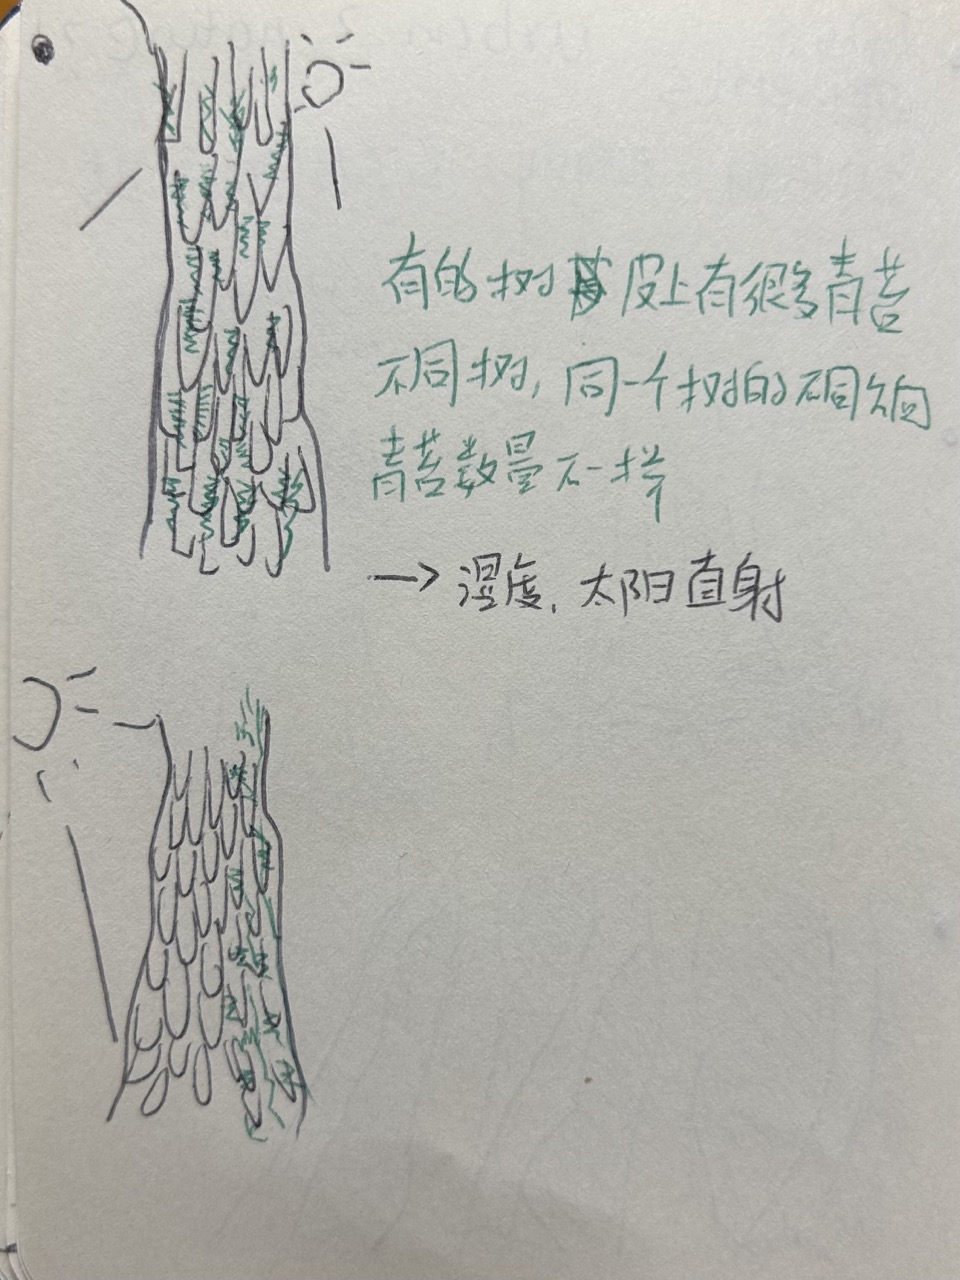 有的树皮上有很多青苔
不同树,同一个树的不同朝向
青苔数量不一样
→湿度,太阳直射